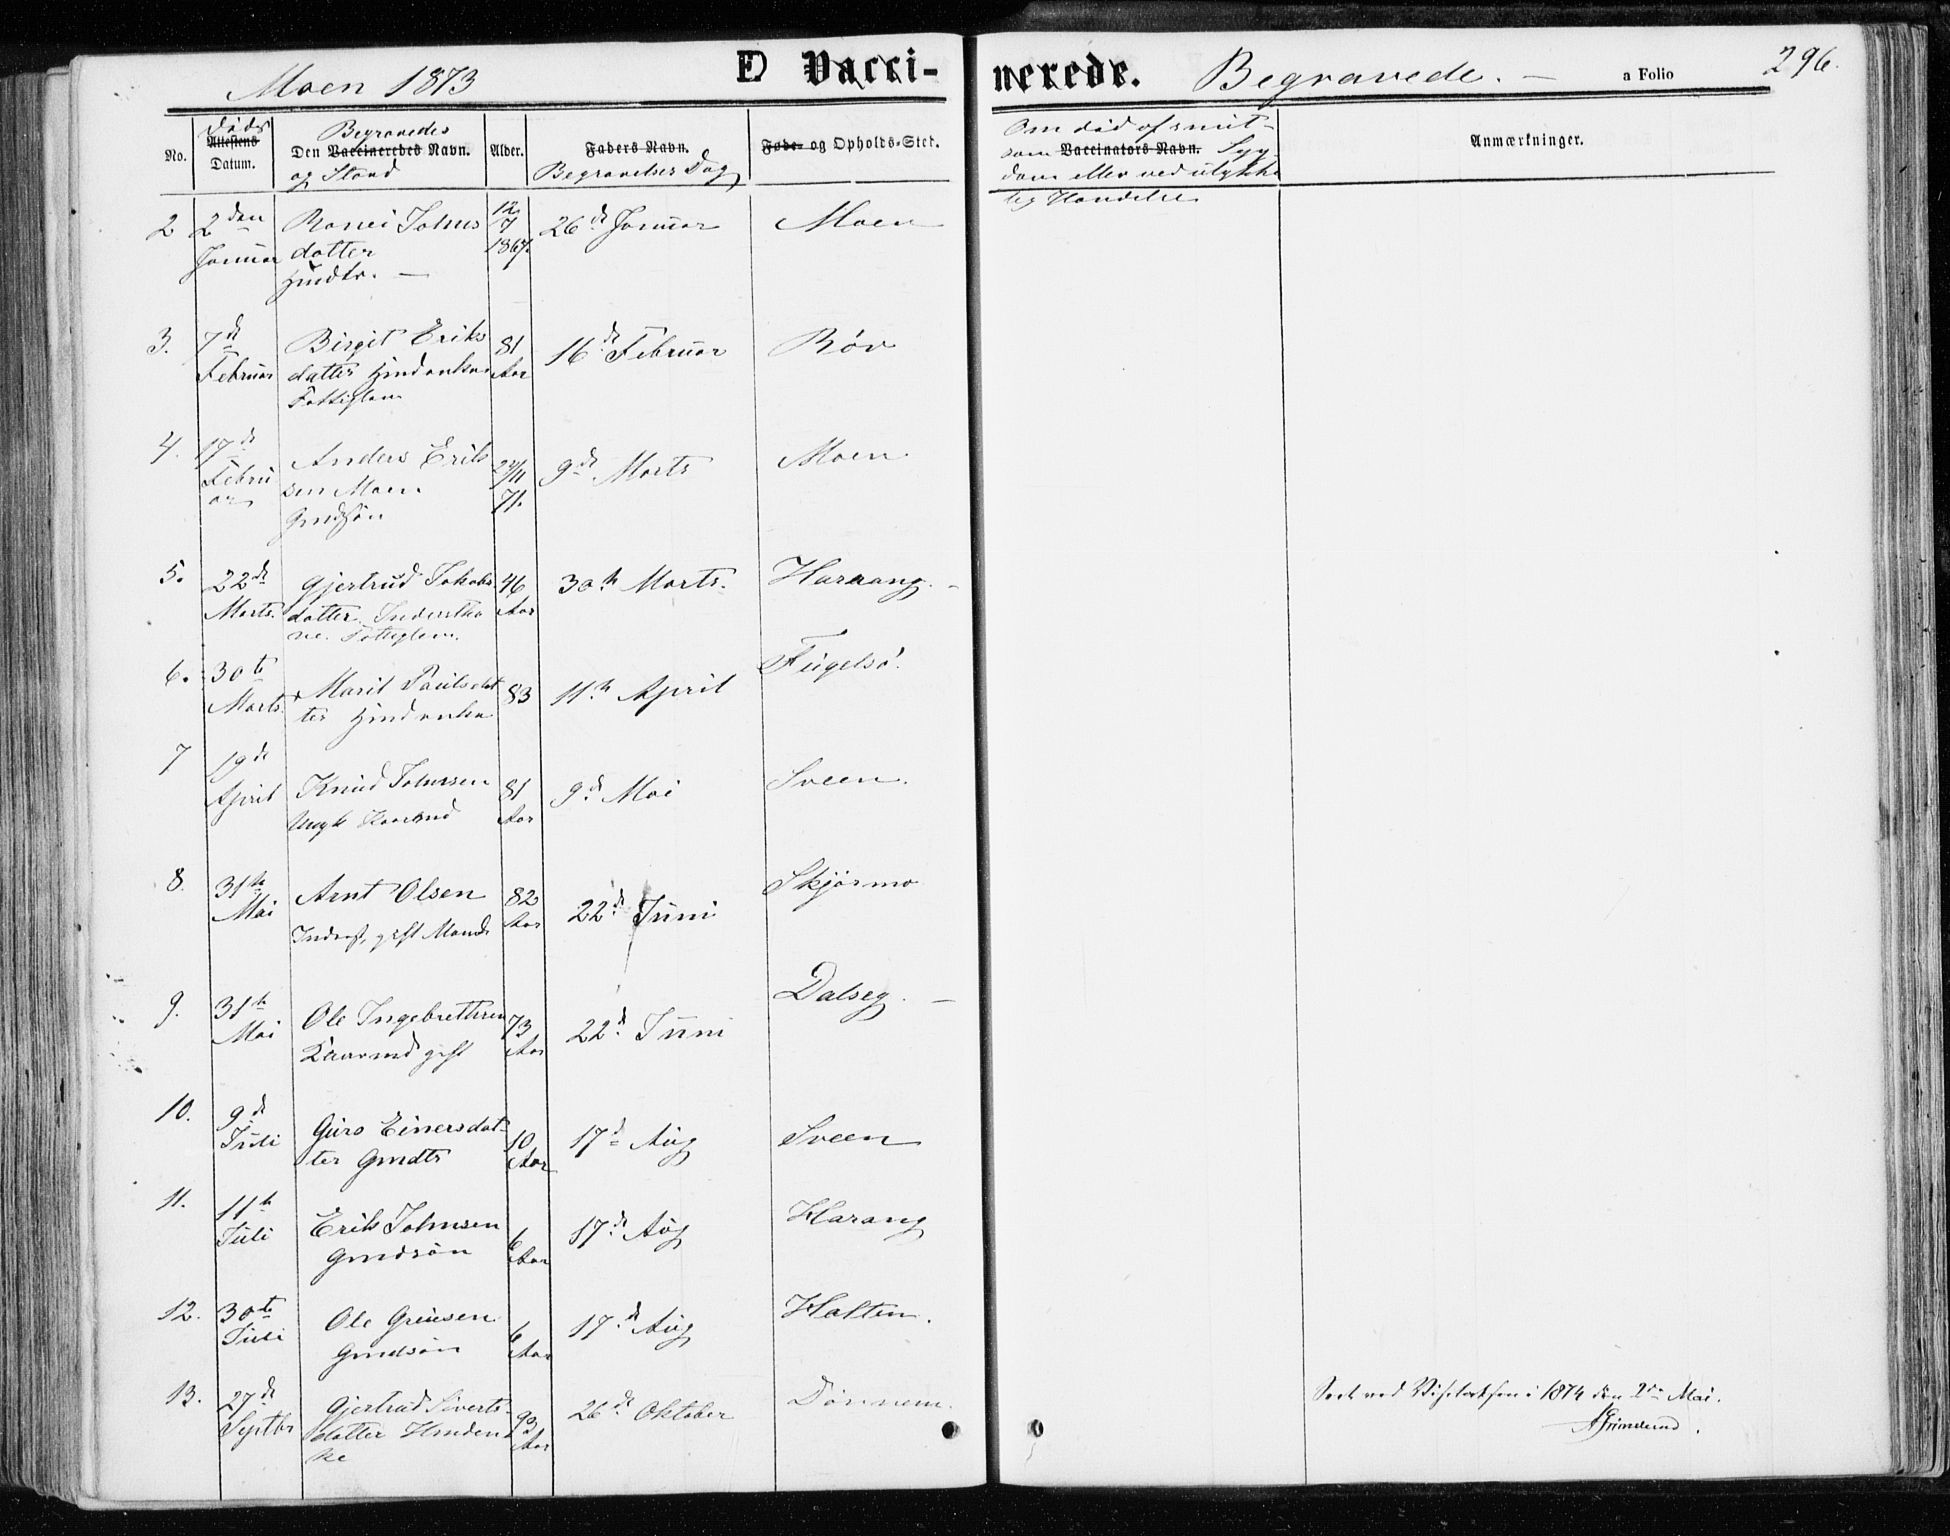 Moen 1873
E Vacci-nerede. Begravede. — a Folio 296.
No.
Døds
Attestens
Datum.
Begravedes
Den Vaccineredes Navn.
og Stand
Alder.
Faders Navn.
Begravelses Dag
Føde- og Opholds-Sted.
Om død af smit-
som Vaccinators Navn. Syg
dom eller ved ulykke
lig Hændelse
Anmærkninger.
2 2den Januar
Ronei Johns
datter
Gmdtr. —
12/7 1867.
26de Januar
Moen
3. 7de Februar
Birgit Eriks
datter Gmdenke
Fattiglem
81 Aar
16de Februar
Røv
4. 17de Febru
ar
Anders Erik
sen Moen
Gmdsøn
24/11 71.
9de Marts
Moen
5. 22de Marts.
Gjertrud Jakobs
datter Inderstko
ne. Fattiglem.
46 Aar
30te Marts.
Haraang. —
6. 30te Marts.
Marit Paulsdat
ter Gmdenke
83
11te April
Fugelsø.
7 19de April
Knud Johnsen
Ungk Kaarmd
81 Aar
9de Mai
Sveen.
8. 31te Mai
Arnt Olsen
Inderst, gift Mand
82 Aar
22de Juni
Skjørmo
9. 31te Mai
Ole Ingebrettsen
Kaarmd gift
73 Aar
22de Juni
Dalseg. —
10. 9de Juli
Guro Einersdat-
ter Gmdtr
10 Aar
17de Aug
Sveen
11. 11te Juli
Erik Johnsen
Gmdsøn
6 Aar
17de Aug
Harang
12. 30te Juli
Ole
Gmdsøn
6 Aar
17de Aug
Halten.
13. 27de Septbr
Gjertrud Siverts-
datter Gmden
ke
93 Aar
26de Oktober
Dønnem.
Seet ved Visitatsen i 1874 den 2den Mai.
AGrimelund.